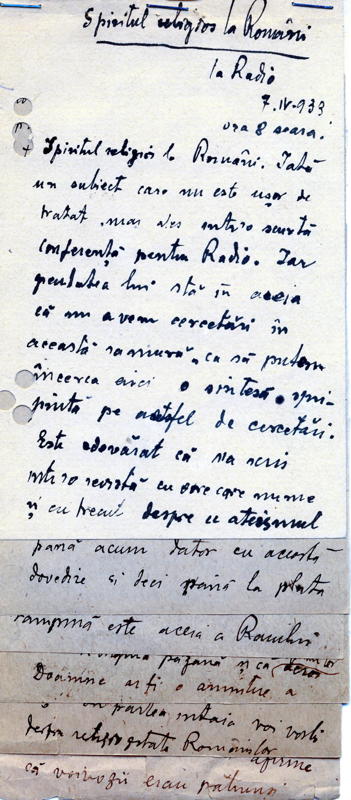 Spiritul religios la Români
la Radio
7.IV-933
ora 8 seara.
Spiritul religios la Români. Iată
un subiect care nu este ușor de
tratat, mai ales într-o scurtă
conferență pentru Radio. Iar
greutatea lui stă în aceia
că nu avem cercetări în
această ramură, ca să putem
încerca aici o sinteză spri-
jinită pe astfel de cercetări.
Este adevărat că s'a scris
într-o revistă cu oare care nume
și cu trecut despre ateismul
până acum dator cu această
dovedire și deci până la plata
este aceia a Românilor
păgână și că
Doamne ar fi o amintire a
în partea întaia voi vorbi
despre religiozitatea Românilor
afirme
că voivozii erau pătrunși